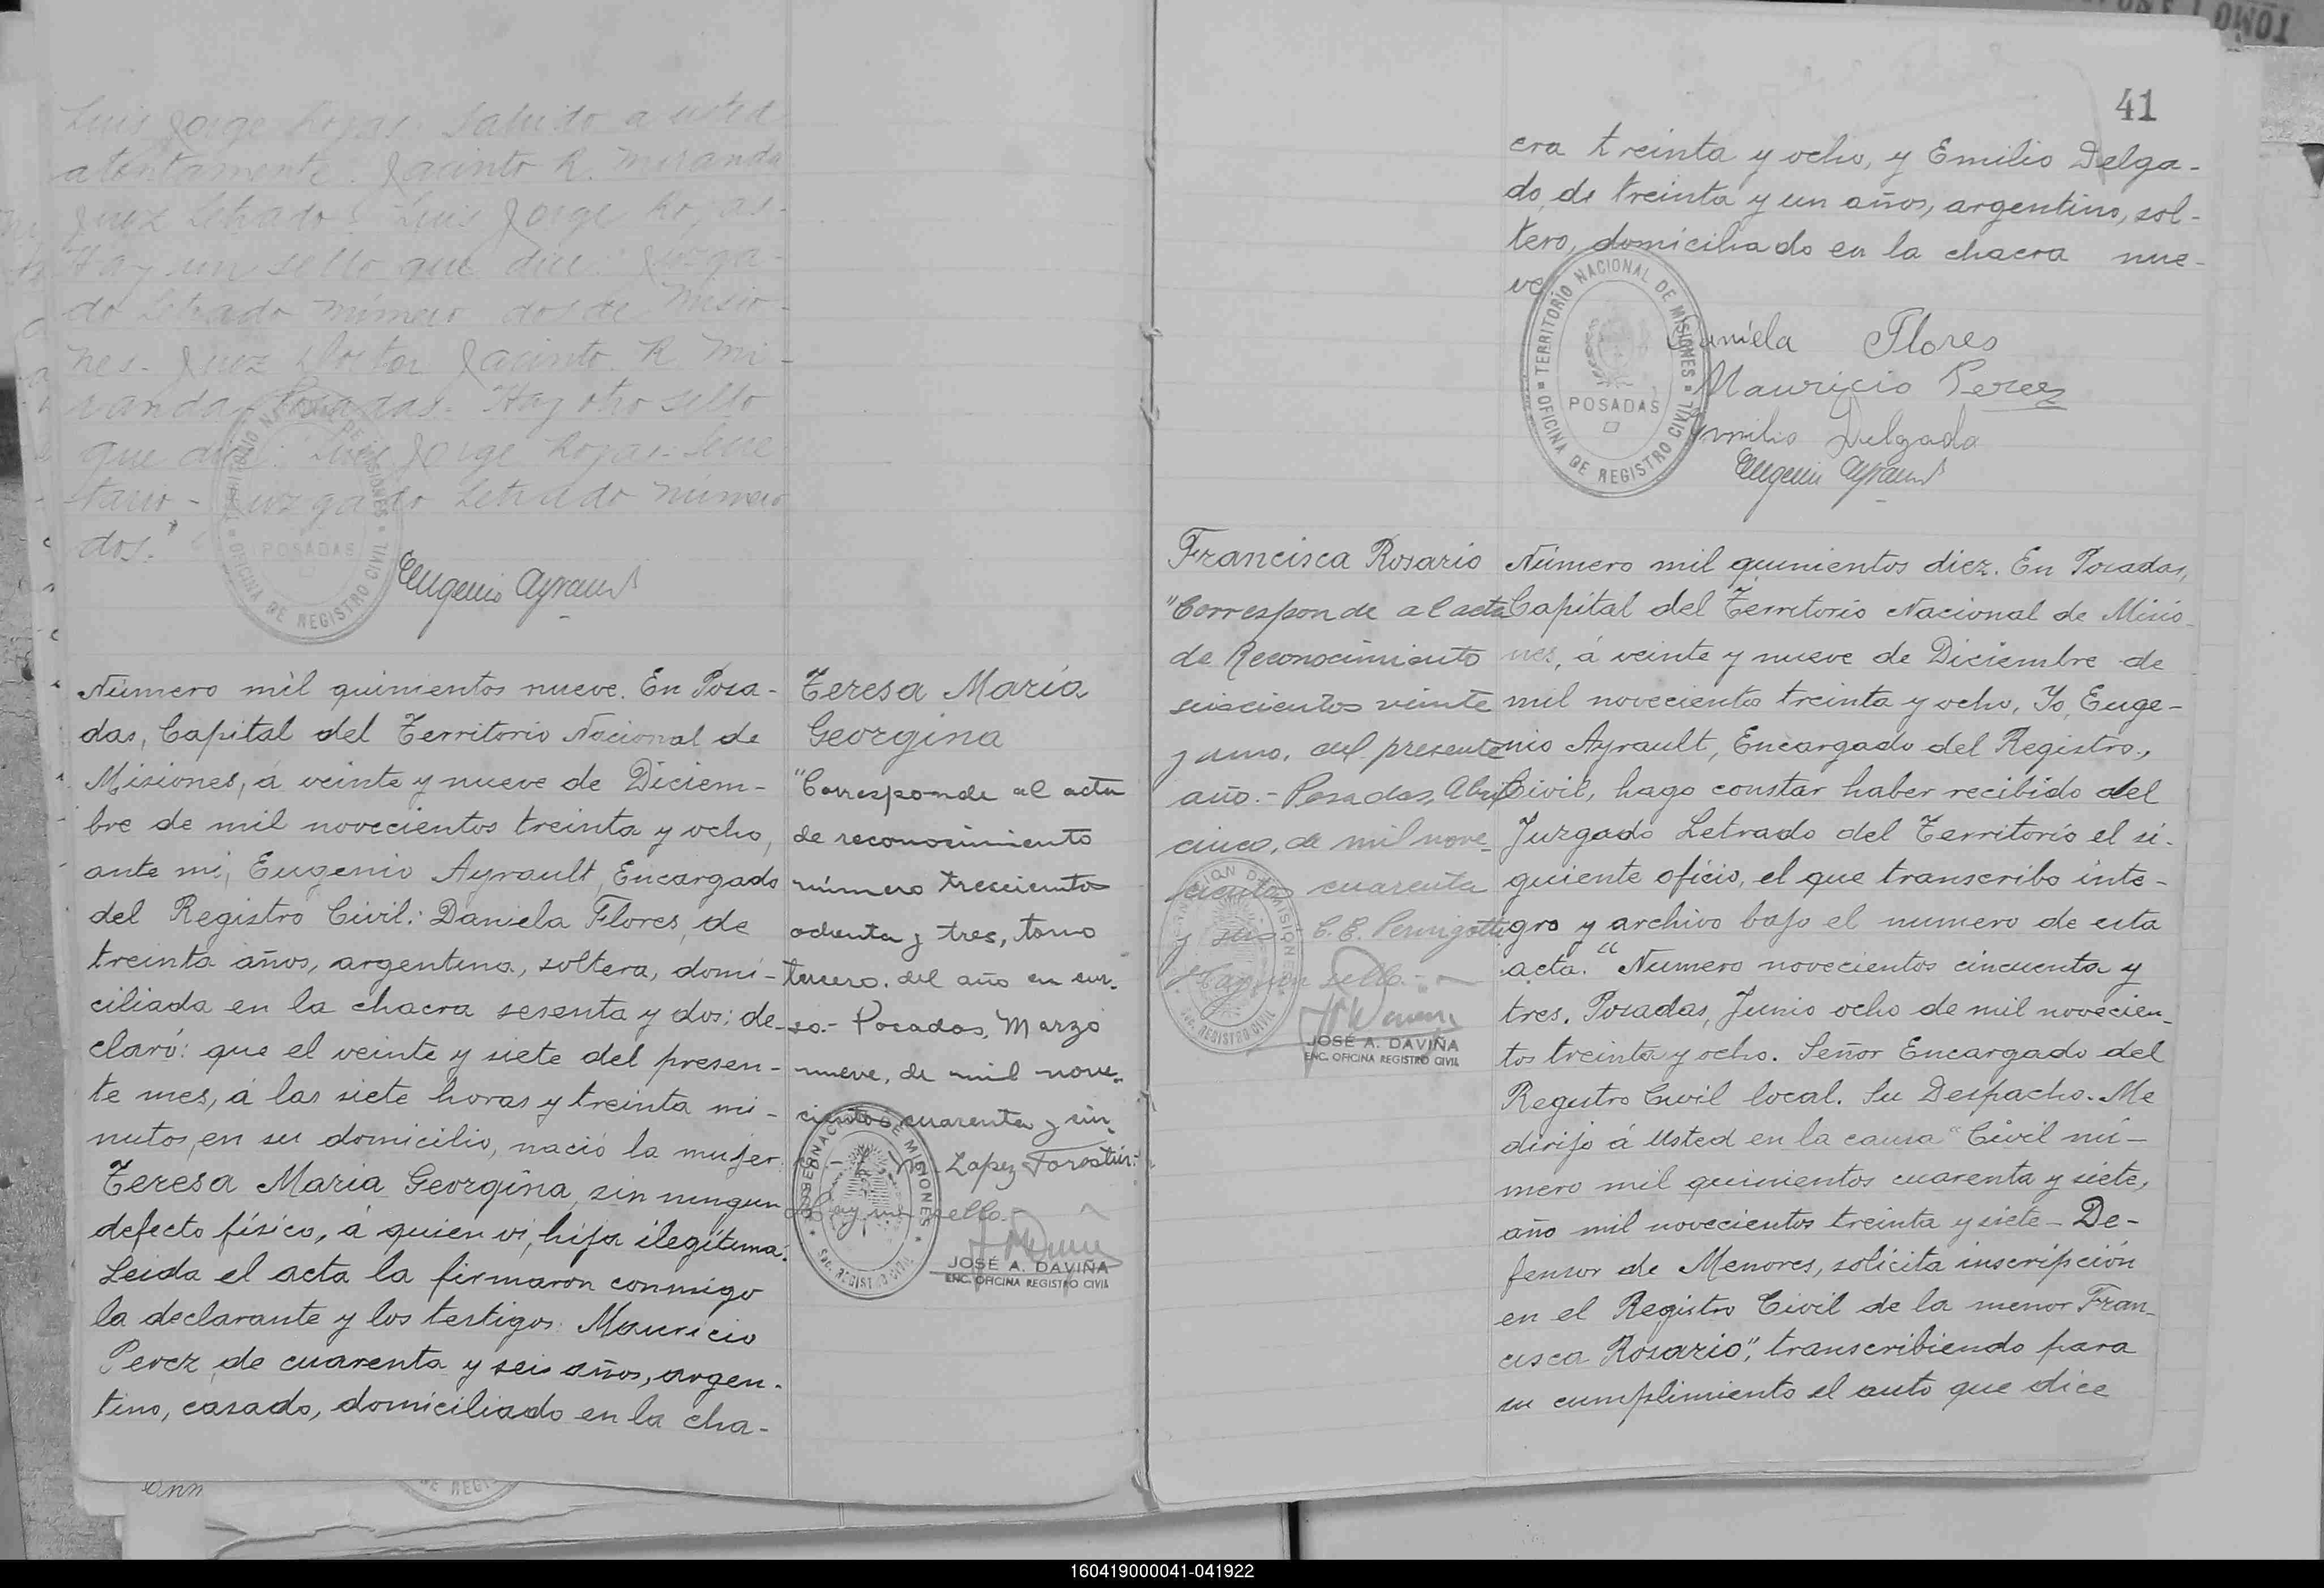 Luis Jorge Rojas. Saludo a usted
atentamente. Jacinto R. Miranda
Juez Letrado. Luis Jorge Rojas.
Hay un sello que dice: Juzga-
do Letrado número dos de Misio-
nes. Juez Doctor Jacinto R. Mi-
randa. Posadas. Hay otro sello
que dice: Luis Jorge Rojas. Secre
tario - Juzgado Letrado número
dos."
TERRITORIO NACIONAL DE MISIONES
OFICINA DE REGISTRO CIVIL
POSADAS
Eugenio Ayrault
Número mil quinientos nueve. En Posa-
das, Capital del Territorio Nacional de
Misiones, á veinte y nueve de Diciem-
bre de mil novecientos treinta y ocho,
ante mi, Eugenio Ayrault, Encargado
del Registro Civil: Daniela Flores, de
treinta años, argentina, soltera, domi-
ciliada en la chacra sesenta y dos; de-
claró: que el veinte y siete del presen-
te mes, á las siete horas y treinta mi-
nutos, en su domicilio, nació la mujer
Teresa Maria Georgina, sin ningun
defecto físico, á quien vi, hija ilegítima.
Leida el acta la firmaron conmigo
la declarante y los testigos: Mauricio
Perez, de cuarenta y seis años, argen-
tino, casado, domiciliado en la cha-
Teresa María
Georgina
"Corresponde al acta
de reconocimiento
número trescientos
ochenta y tres, tomo
tercero. del año en cur-
so.- Posadas, Marzo
nueve, de mil nove-
cientos cuarenta y cin
Lopez Forastier.-
Hay un sello.-
GOBERNACION DE MISIONES
SEC. REGISTRO CIVIL
JOSÉ A. DAVIÑA
ENC. OFICINA REGISTRO CIVIL
41
cra treinta y ocho, y Emilio Delga-
do, de treinta y un años, argentino, sol-
tero, domiciliado en la chacra nue-
ve
TERRITORIO NACIONAL DE MISIONES
OFICINA DE REGISTRO CIVIL
POSADAS
Daniela Flores
Mauricio Perez
Emilio Delgado
Eugenio Ayrault
Francisca Rosario
"Corresponde al acta
de Reconocimiento
seiscientos veinte
y uno, del presente
año.- Posadas, Abril
cinco, de mil nove-
cientos cuarenta
y C. E. Peningotti
Hay un sello.-
GOBERNACION DE MISIONES
SEC. REGISTRO CIVIL
JOSÉ A. DAVIÑA
ENC. OFICINA REGISTRO CIVIL
Número mil quinientos diez. En Posadas,
Capital del Territorio Nacional de Misio-
nes, á veinte y nueve de Diciembre de
mil novecientos treinta y ocho, Yo, Euge-
nio Ayrault, Encargado del Registro,
Civil, hago constar haber recibido del
Juzgado Letrado del Territorio el si-
guiente oficio, el que transcribo inte-
gro y archivo bajo el numero de esta
acta. "Numero novecientos cincuenta y
tres. Posadas, Junio ocho de mil novecien-
tos treinta y ocho. Señor Encargado del
Registro Civil local. Su Despacho. Me
dirijo á Usted en la causa "Civil nú-
mero mil quinientos cuarenta y siete,
año mil novecientos treinta y siete - De-
fensor de Menores, solicita inscripción
en el Registro Civil de la menor Fran-
cisca Rosario", transcribiendo para
su cumplimiento el auto que dice
160419000041-041922